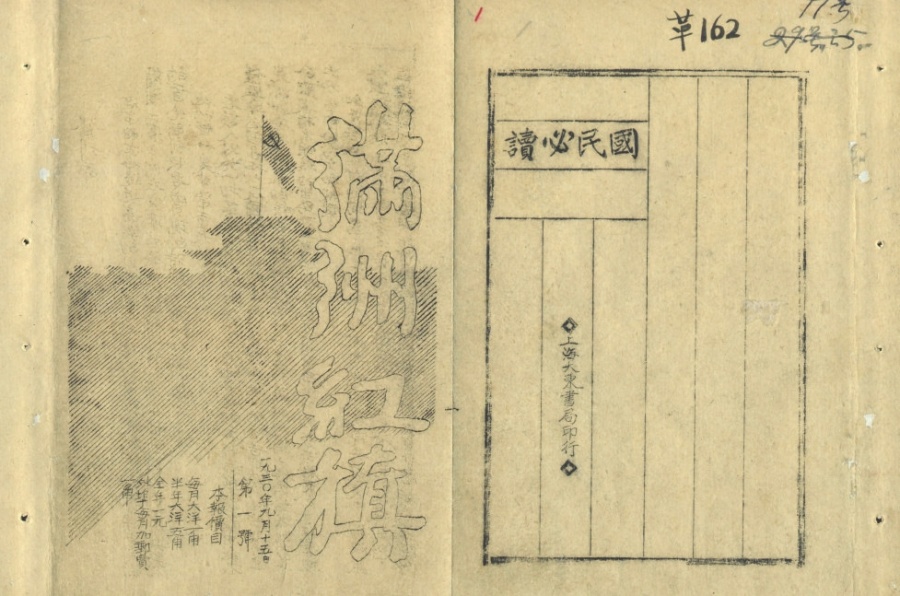 革162
11号
國民必讀
上海大東書局印行
滿洲紅旗
一九三〇年九月十五日
第一號
本報價目
每月大洋一角
半年大洋六角
全年一元